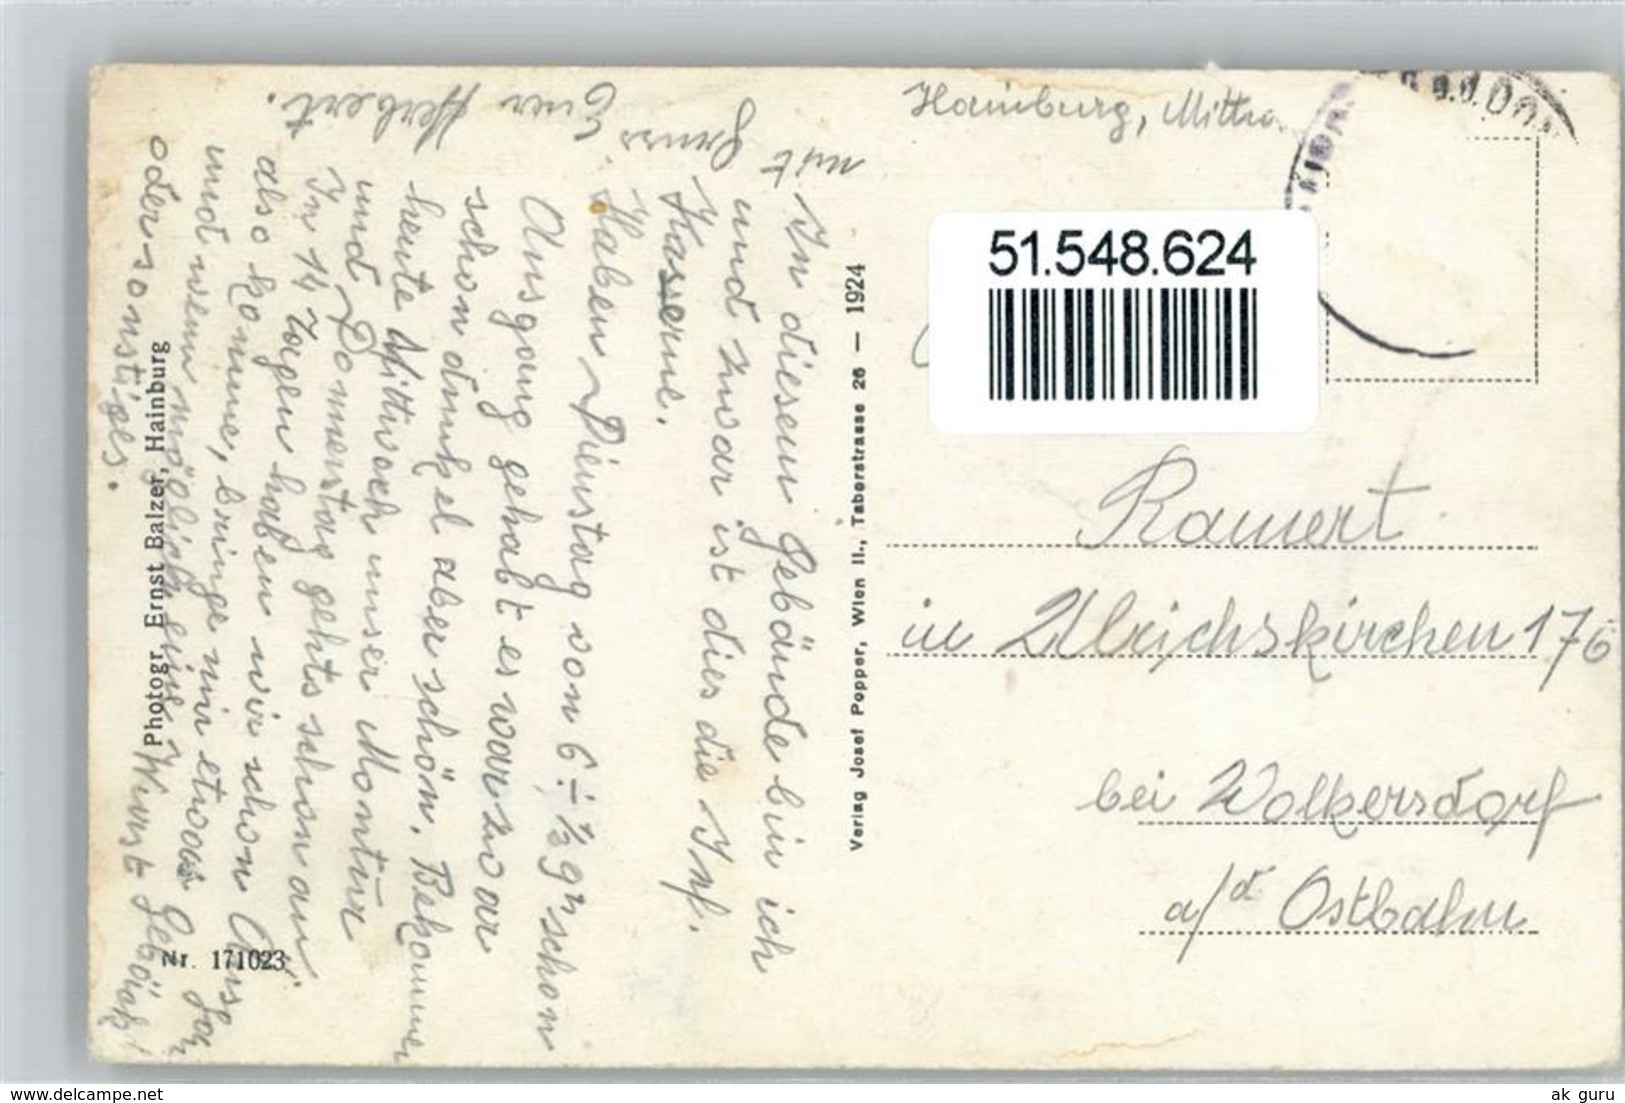 Hainburg, Mittw
51.548.624
Ramert
in Ulrichskirchen 176
bei Wolkersdorf
a/d Ostbahn
Verlag Josef Popper, Wien II., Taborstrasse 26 — 1924
In diesem Gebäude bin ich
und zwar ist dies die Inf.
Kaserne.
Haben Dienstag von 6 ÷ ½ 9h schon
Ausgang gehabt es war zwar
schon dunkel aber schön. Bekommen
heute Mittwoch unser Montur
und Donnerstag gehts schon an
In 14 Tagen haben wir schon Ausg
also komme, bringe mir etwas
und wenn möglich eine Wurst Gebäck
oder sonstiges.
mit Gruss Euer Herbert.
Photogr. Ernst Balzer, Hainburg
Nr. 171023
ak guru